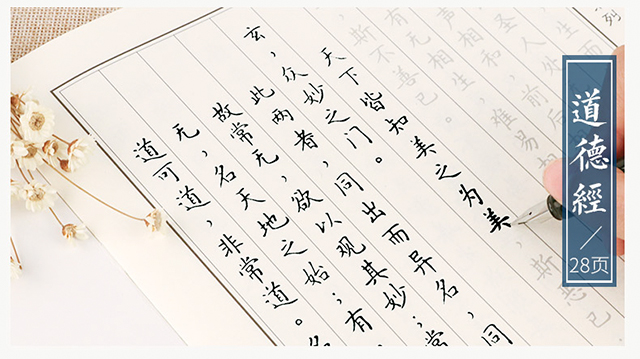 道可道，非常道。名
无，名天地之始；有
故常无，欲以观其妙；常
此两者，同出而异名，同
玄，众妙之门。
天下皆知美之为美，斯恶已
斯不善已。
有无相生，难易相
声相和，前后
圣人处
列
道德經
28页